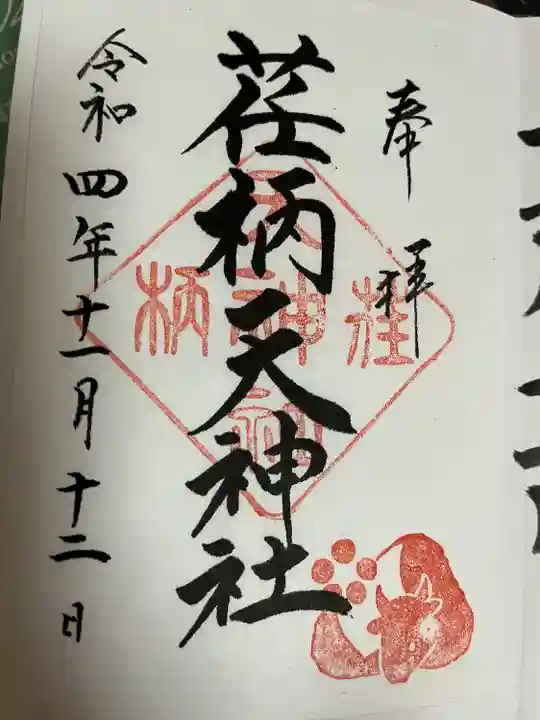 奉拝
荏柄天神社
荏柄天神社
令和四年十一月十二日